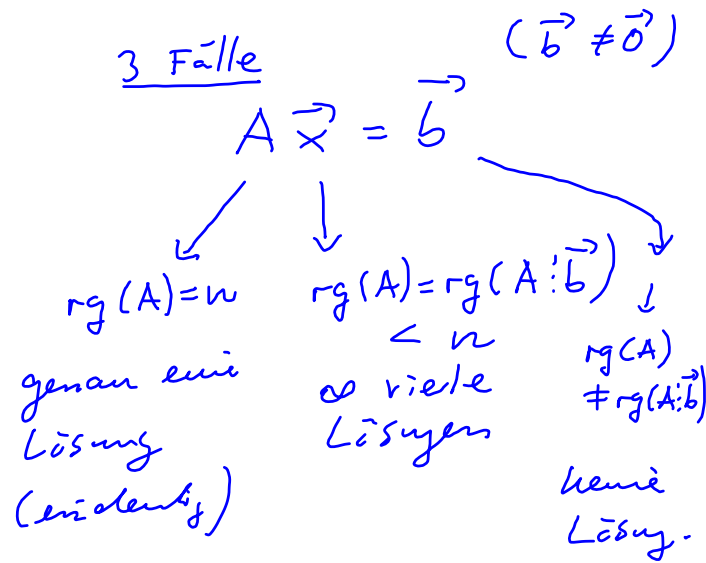 3 Fälle
(b⃗ ≠ o⃗)
A x⃗ = b⃗
rg(A)=n
genau eine
Lösung
(eindeutig)
rg(A)=rg(A⋮b⃗)
< n
∞ viele
Lösungen
rg(A)
≠ rg(A⋮b⃗)
keine
Lösung.